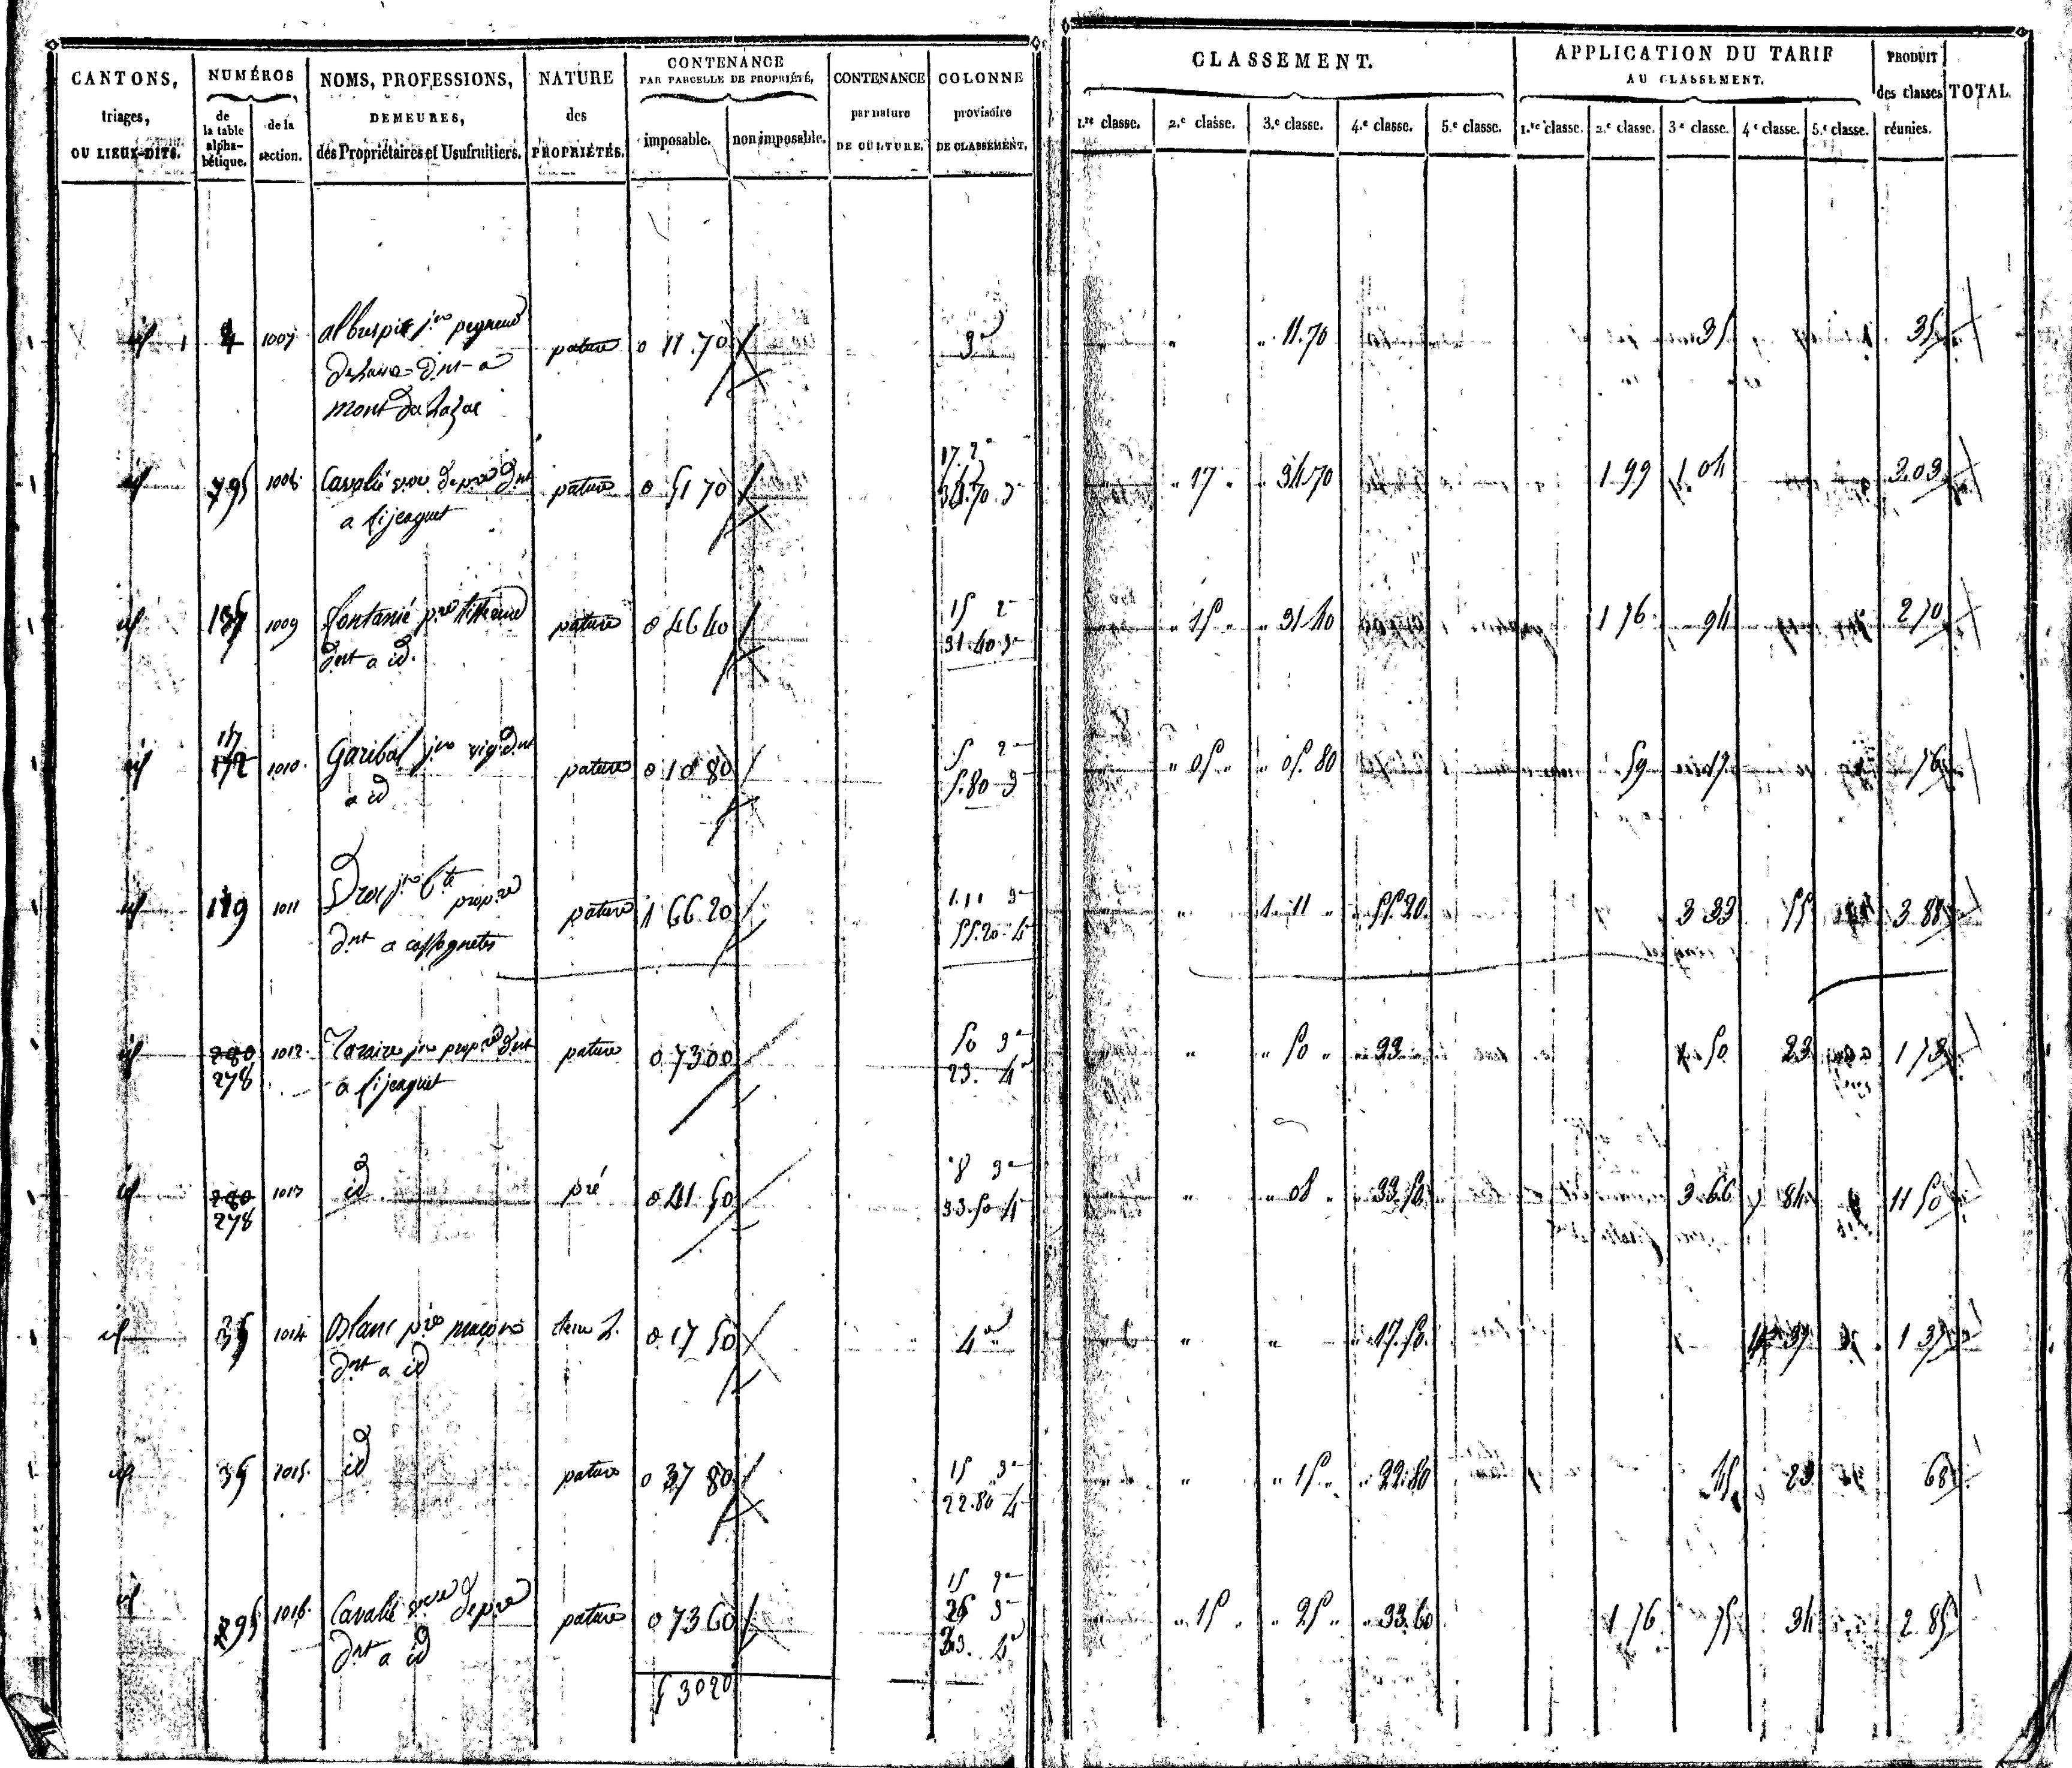 CANTONS,
triages,
OU LIEUX-DITS.
NUMÉROS
de
la table
alpha-
bétique.
de la
section.
NOMS, PROFESSIONS,
DEMEURES,
des Propriétaires et Usufruitiers.
NATURE
des
PROPRIÉTÉS.
CONTENANCE
PAR PARCELLE DE PROPRIÉTÉ,
imposable.
non imposable.
CONTENANCE
par nature
DE CULTURE.
COLONNE
provisoire
DE CLASSEMENT.
CLASSEMENT.
1.re classe. 2.e classe. 3.e classe. 4.e classe. 5.e classe.
APPLICATION DU TARIF
AU CLASSEMENT.
1.re classe. 2.e classe. 3.e classe. 4.e classe. 5.e classe.
PRODUIT
des classes
réunies.
TOTAL.
id 4 1007 albuspit j.re pature 0 11.70 3e 11.70 35 35
id 295 1008 Cavalié pature 0 51 70 17. 2e 17 34.70 1 99 1.04 3.03
a fijeaguet 34.70 3e
id 135 1009 fontanié p.re pature 0 46 40 15 2e 15 31 40 1 76 94 2 70
dnt a id. 31.40 3e
id 172 1010 Garibal j.re dnt pature 0 10 80 5 2e 05 05.80 59 17 76
a id 5.80 3e
id 119 1011 j.re propre pature 1 66 20 1.11 3e 1.11 55.20 3 33 55 3 88
dnt a cassognetes 55.20 4e
id 280 1012 j.re propre dnt pature 0 73 00 50 3e 50 23 1.50 23 1 73
278 a fijeaguet 23. 4e
id 280 1013 id pré 0 41 50 8 3e 08 33.50 3 66 7 84 11 50
278 33.50 4e
id 35 1014 Blanc p.re maçon terre L. 0 17 50 4e 17.50 1 37 1 37
dnt a id
id 35 1015 id pature 0 37 80 15 3e 15 22.80 45 23 68
22.80 4e
id 295 1016 Cavalié pature 0 73 60 15 2e 15 25 33.60 1 76 75 34 2 85
dnt a id 25 3e
33. 4e
5 30 20